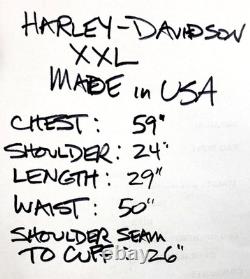 HARLEY-DAVIDSON
XXL
MADE in USA
CHEST: 59"
SHOULDER: 24"
LENGTH: 29"
WAIST: 50"
SHOULDER SEAM
TO CUFF: 26"